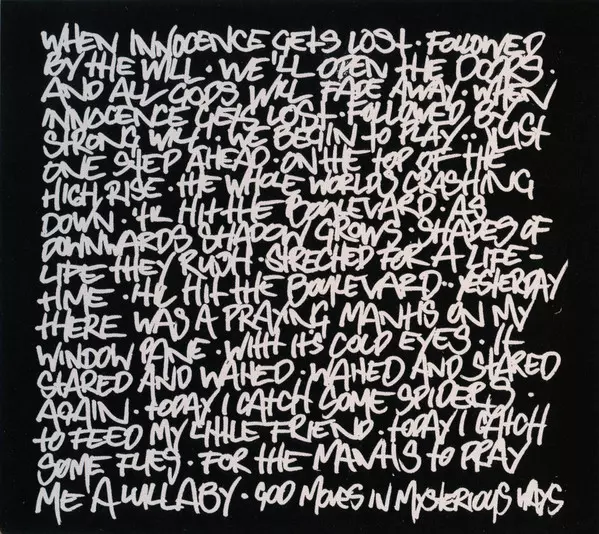 WHEN INNOCENCE GETS LOST · FOLLOWED
BY THE WILL · WE'LL OPEN THE DOORS ·
AND ALL GODS WILL FADE AWAY · WHEN
INNOCENCE GETS LOST · FOLLOWED BY
STRONG WILL · WE BEGIN TO PLAY · · JUST
ONE STEP AHEAD · ON THE TOP OF THE
HIGH RISE · THE WHOLE WORLDS CRASHING
DOWN · 'TIL HIT THE BOULEVARD · AS
DOWNWARDS SHADOW GROWS · SHADES OF
LIFE THEY RUSH · STRECHED FOR A LIFE-
TIME · TIL HIT THE BOULEVARD · · YESTERDAY
THERE WAS A PRAYING MANTIS ON MY
WINDOW PANE · WITH ITS COLD EYES · IT
STARED AND WAITED · WAITED AND STARED
AGAIN · TODAY I CATCH SOME SPIDERS ·
TO FEED MY LITTLE FRIEND · TODAY I CATCH
SOME FLIES · FOR THE MANTIS TO PRAY
ME A LULLABY · GOD MOVES IN MYSTERIOUS WAYS